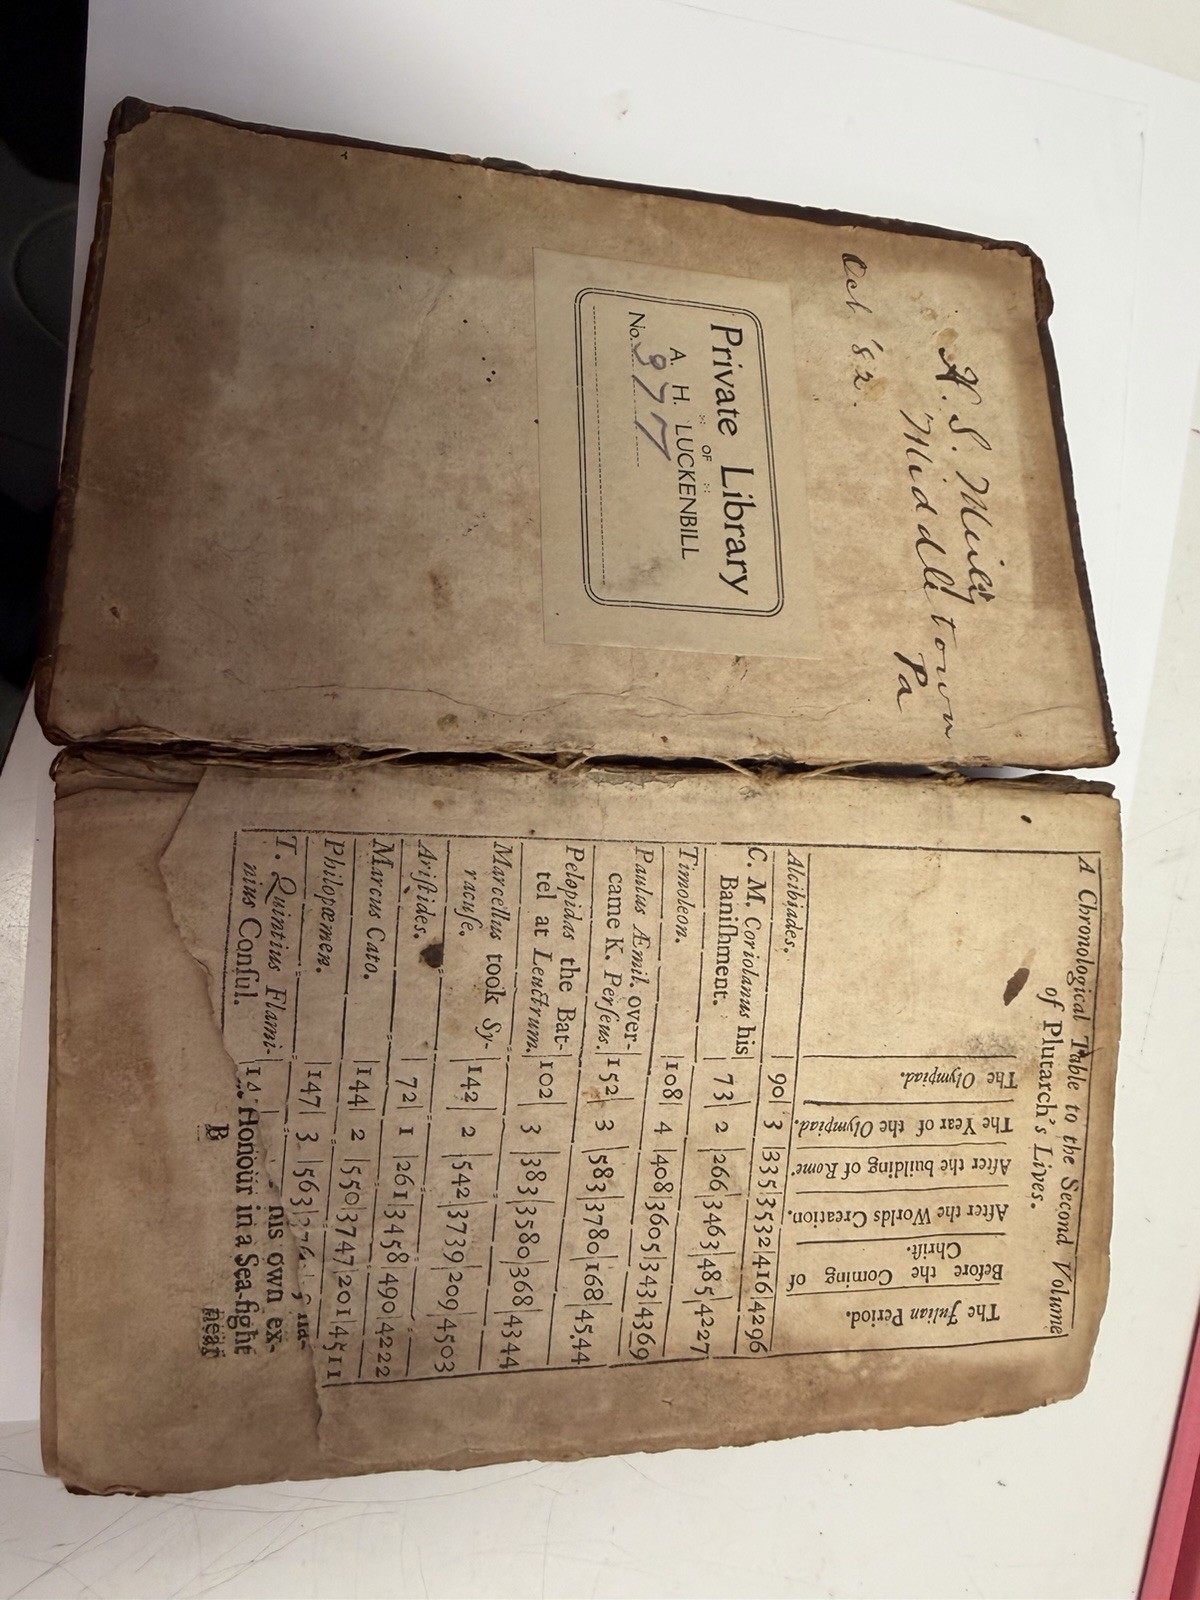 H. S. Meily
Middletown
Pa
Oct '82.
Private Library
OF
A. H. LUCKENBILL
No. 377
A Chronological Table to the Second Volume
of Plutarch's Lives.
The Olympiad.
The Year of the Olympiad.
After the building of Rome
After the Worlds Creation.
Before the Coming of
Chriſt.
The Julian Period.
Alcibiades. 90 3 335 3532 416 4296
C. M. Coriolanus his
Baniſhment. 73 2 266 3463 485 4227
Timoleon. 108 4 408 3605 343 4369
Paulus Æmil. over-
came K. Perſeus. 152 3 583 3780 168 4544
Pelopidas the Bat-
tel at Leuctrum. 102 3 383 3580 368 4344
Marcellus took Sy-
racuſe. 142 2 542 3739 209 4503
Ariſtides. 72 1 261 3458 490 4222
Marcus Cato. 144 2 550 3747 201 4511
Philopæmen. 147 3 563
T. Quintius Flami-
nius Conſul.
his own ex-
Honour in a Sea-fight
B near